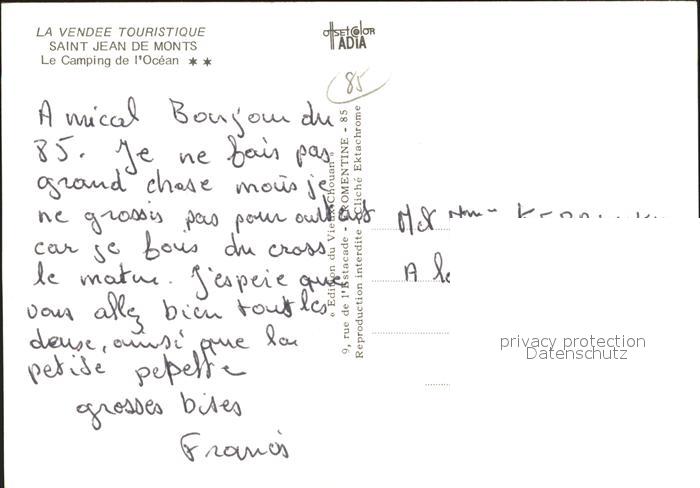 LA VENDEE TOURISTIQUE
SAINT JEAN DE MONTS
Le Camping de l'Océan ✶✶
offset color
ADIA
85
Amical Bonjour du
85. Je ne fais pas
grand chose mais je
ne grossis pas pour autant
car je fais du cross
le matin. J'espère que
vous allez bien tout les
deux, ainsi que la
petite pepette
grosses bises
Francis
« Edition du Vieux Chouan »
9, rue de l'Estacade - FROMENTINE - 85
Reproduction interdite - Cliché Ektachrome
M et Mme
A
privacy protection
Datenschutz